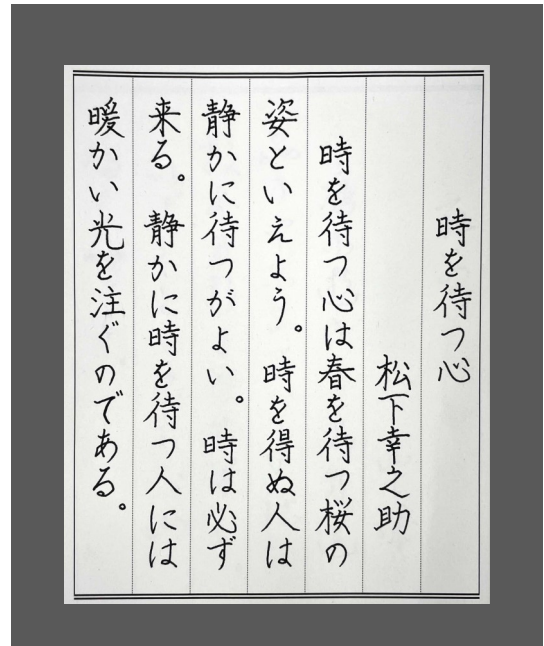 時を待つ心
松下幸之助
時を待つ心は春を待つ桜の
姿といえよう。時を得ぬ人は
静かに待つがよい。時は必ず
来る。静かに時を待つ人には
暖かい光を注ぐのである。